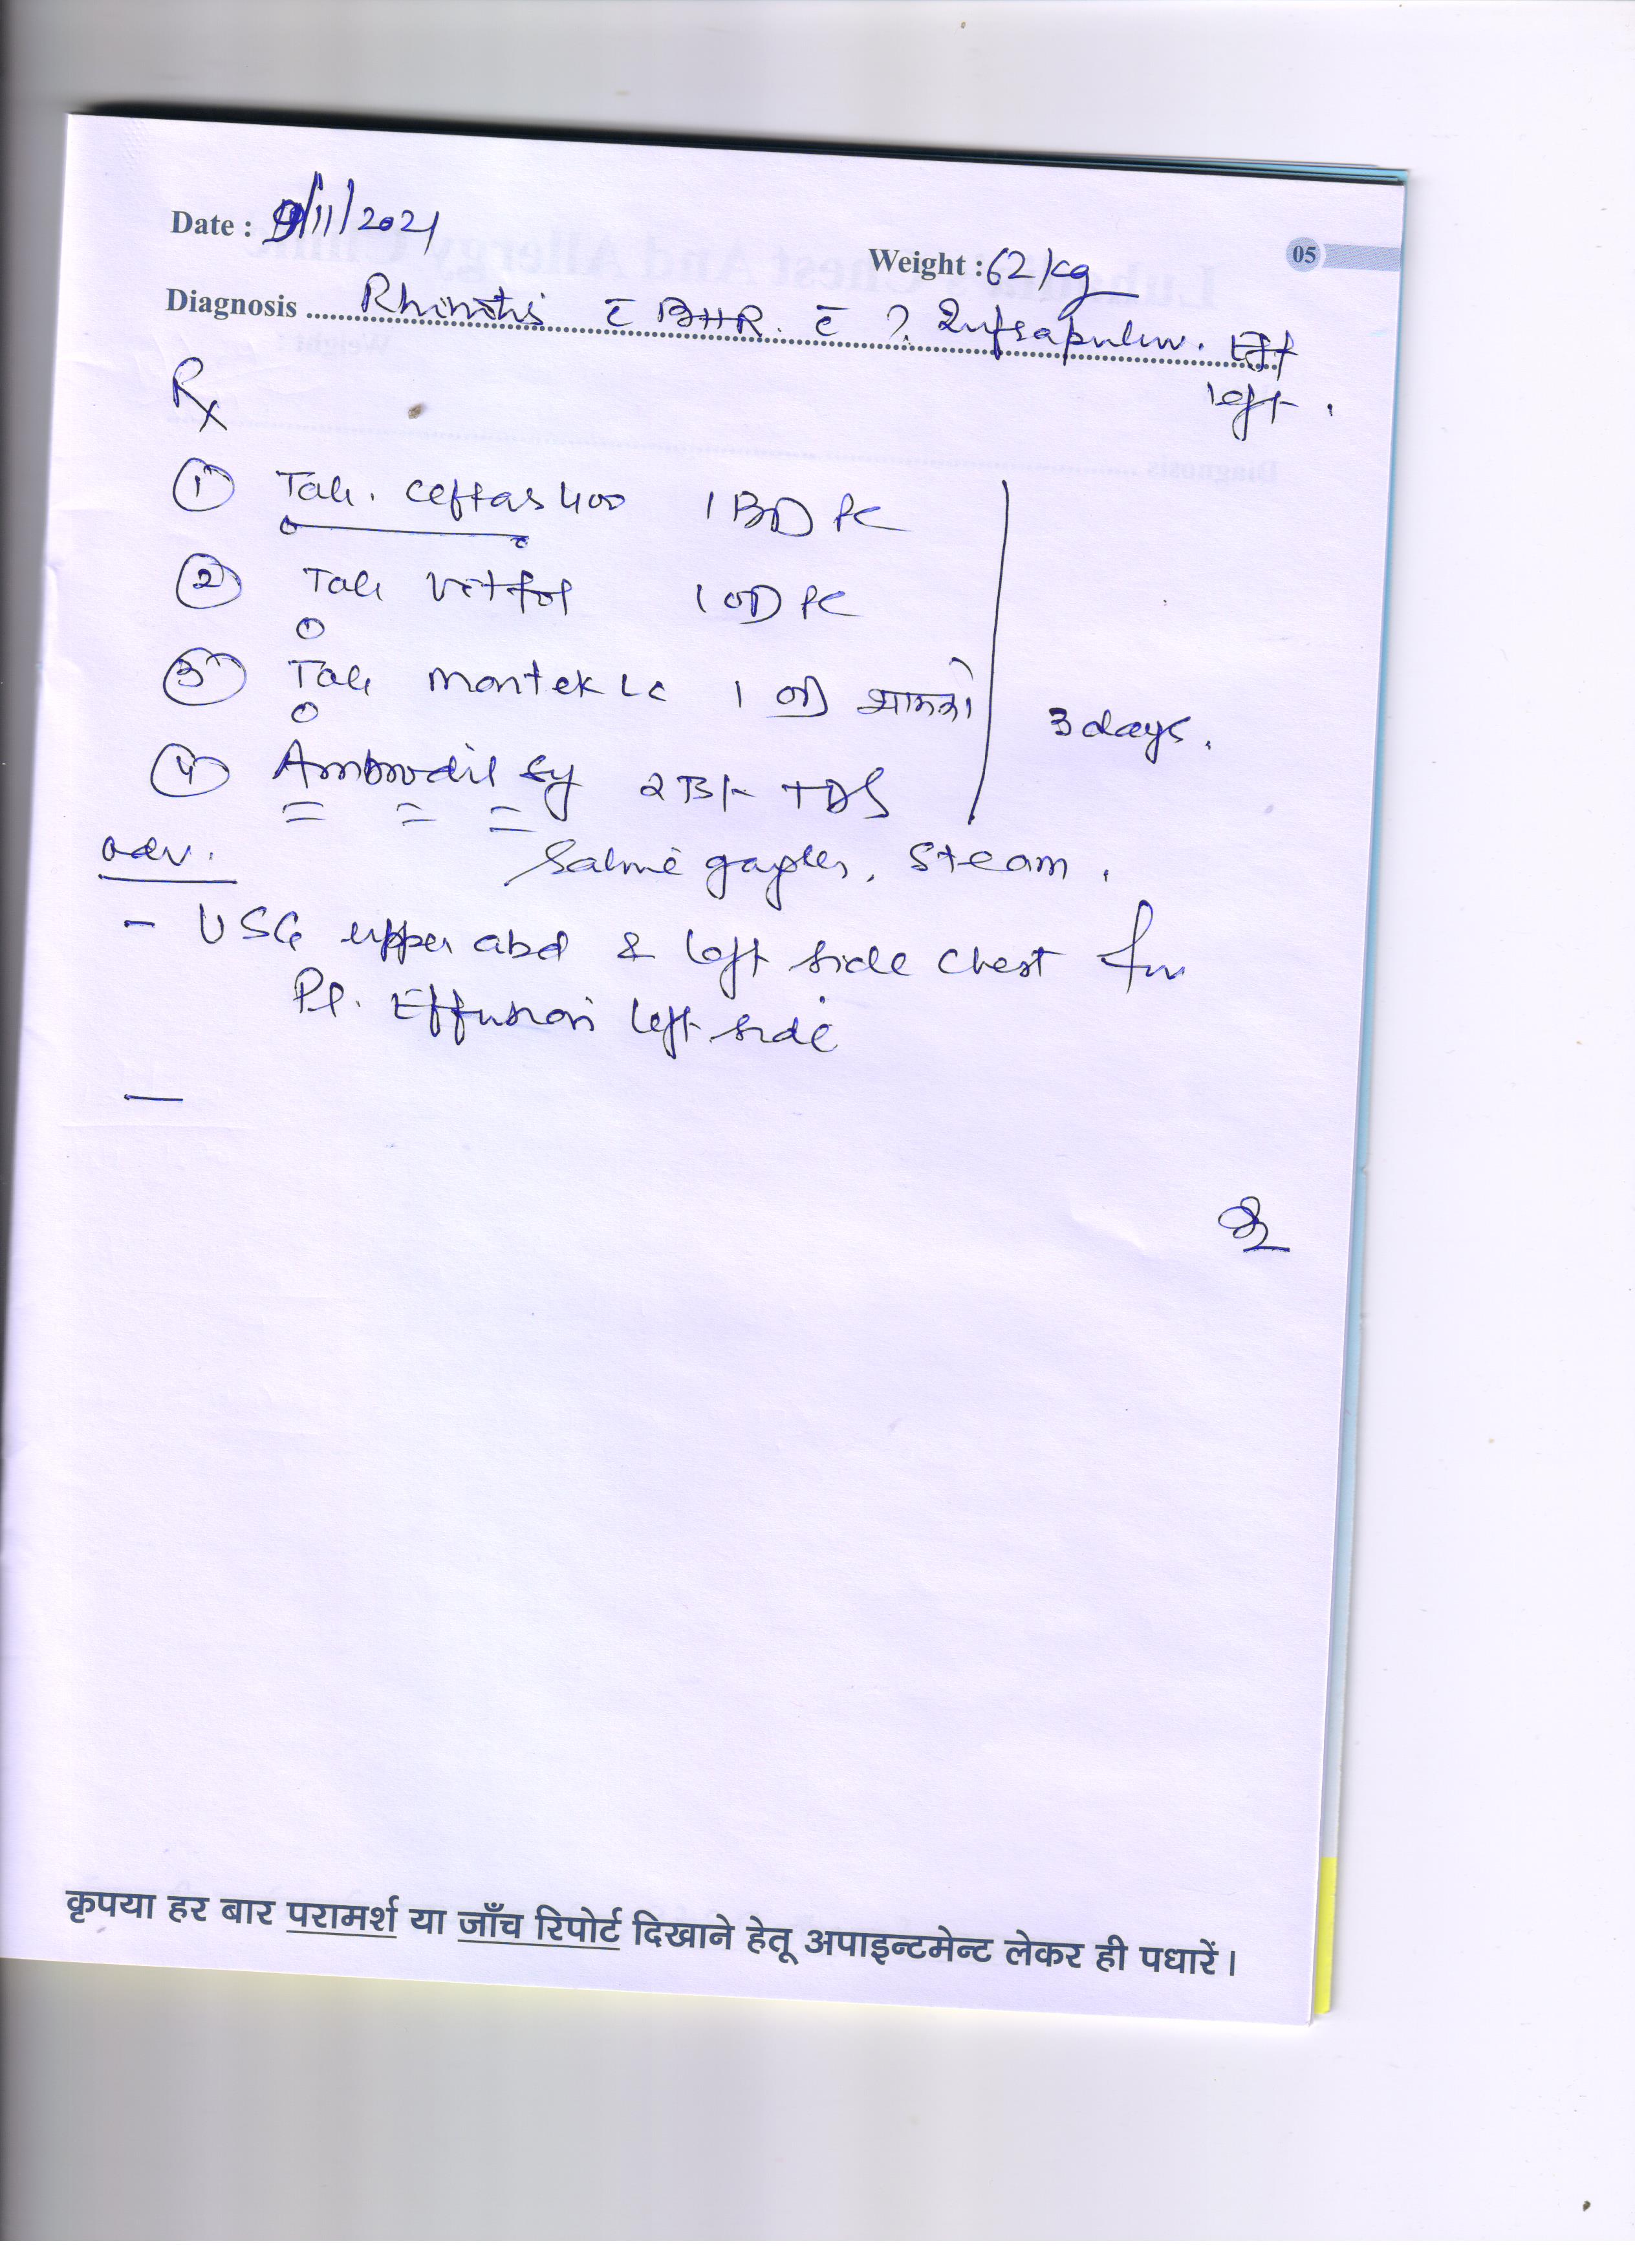 Date : 9/11/2021
05
Weight : 62 kg
Diagnosis ..... Rhinitis c̄ BHR. c̄ ? Infrapulm. Eff
left.
Rx
① Tab. Ceftas 400 1 BD PC
② Tab Vitfol 1 OD PC
③ Tab Montek LC 1 OD शामको
3 days.
④ Ambrodil Sy 2 TSF TDS
adv. Saline gargles, Steam.
- USG upper abd & left side chest for
Pl. Effusion left side
कृपया हर बार परामर्श या जाँच रिपोर्ट दिखाने हेतू अपाइन्टमेन्ट लेकर ही पधारें।